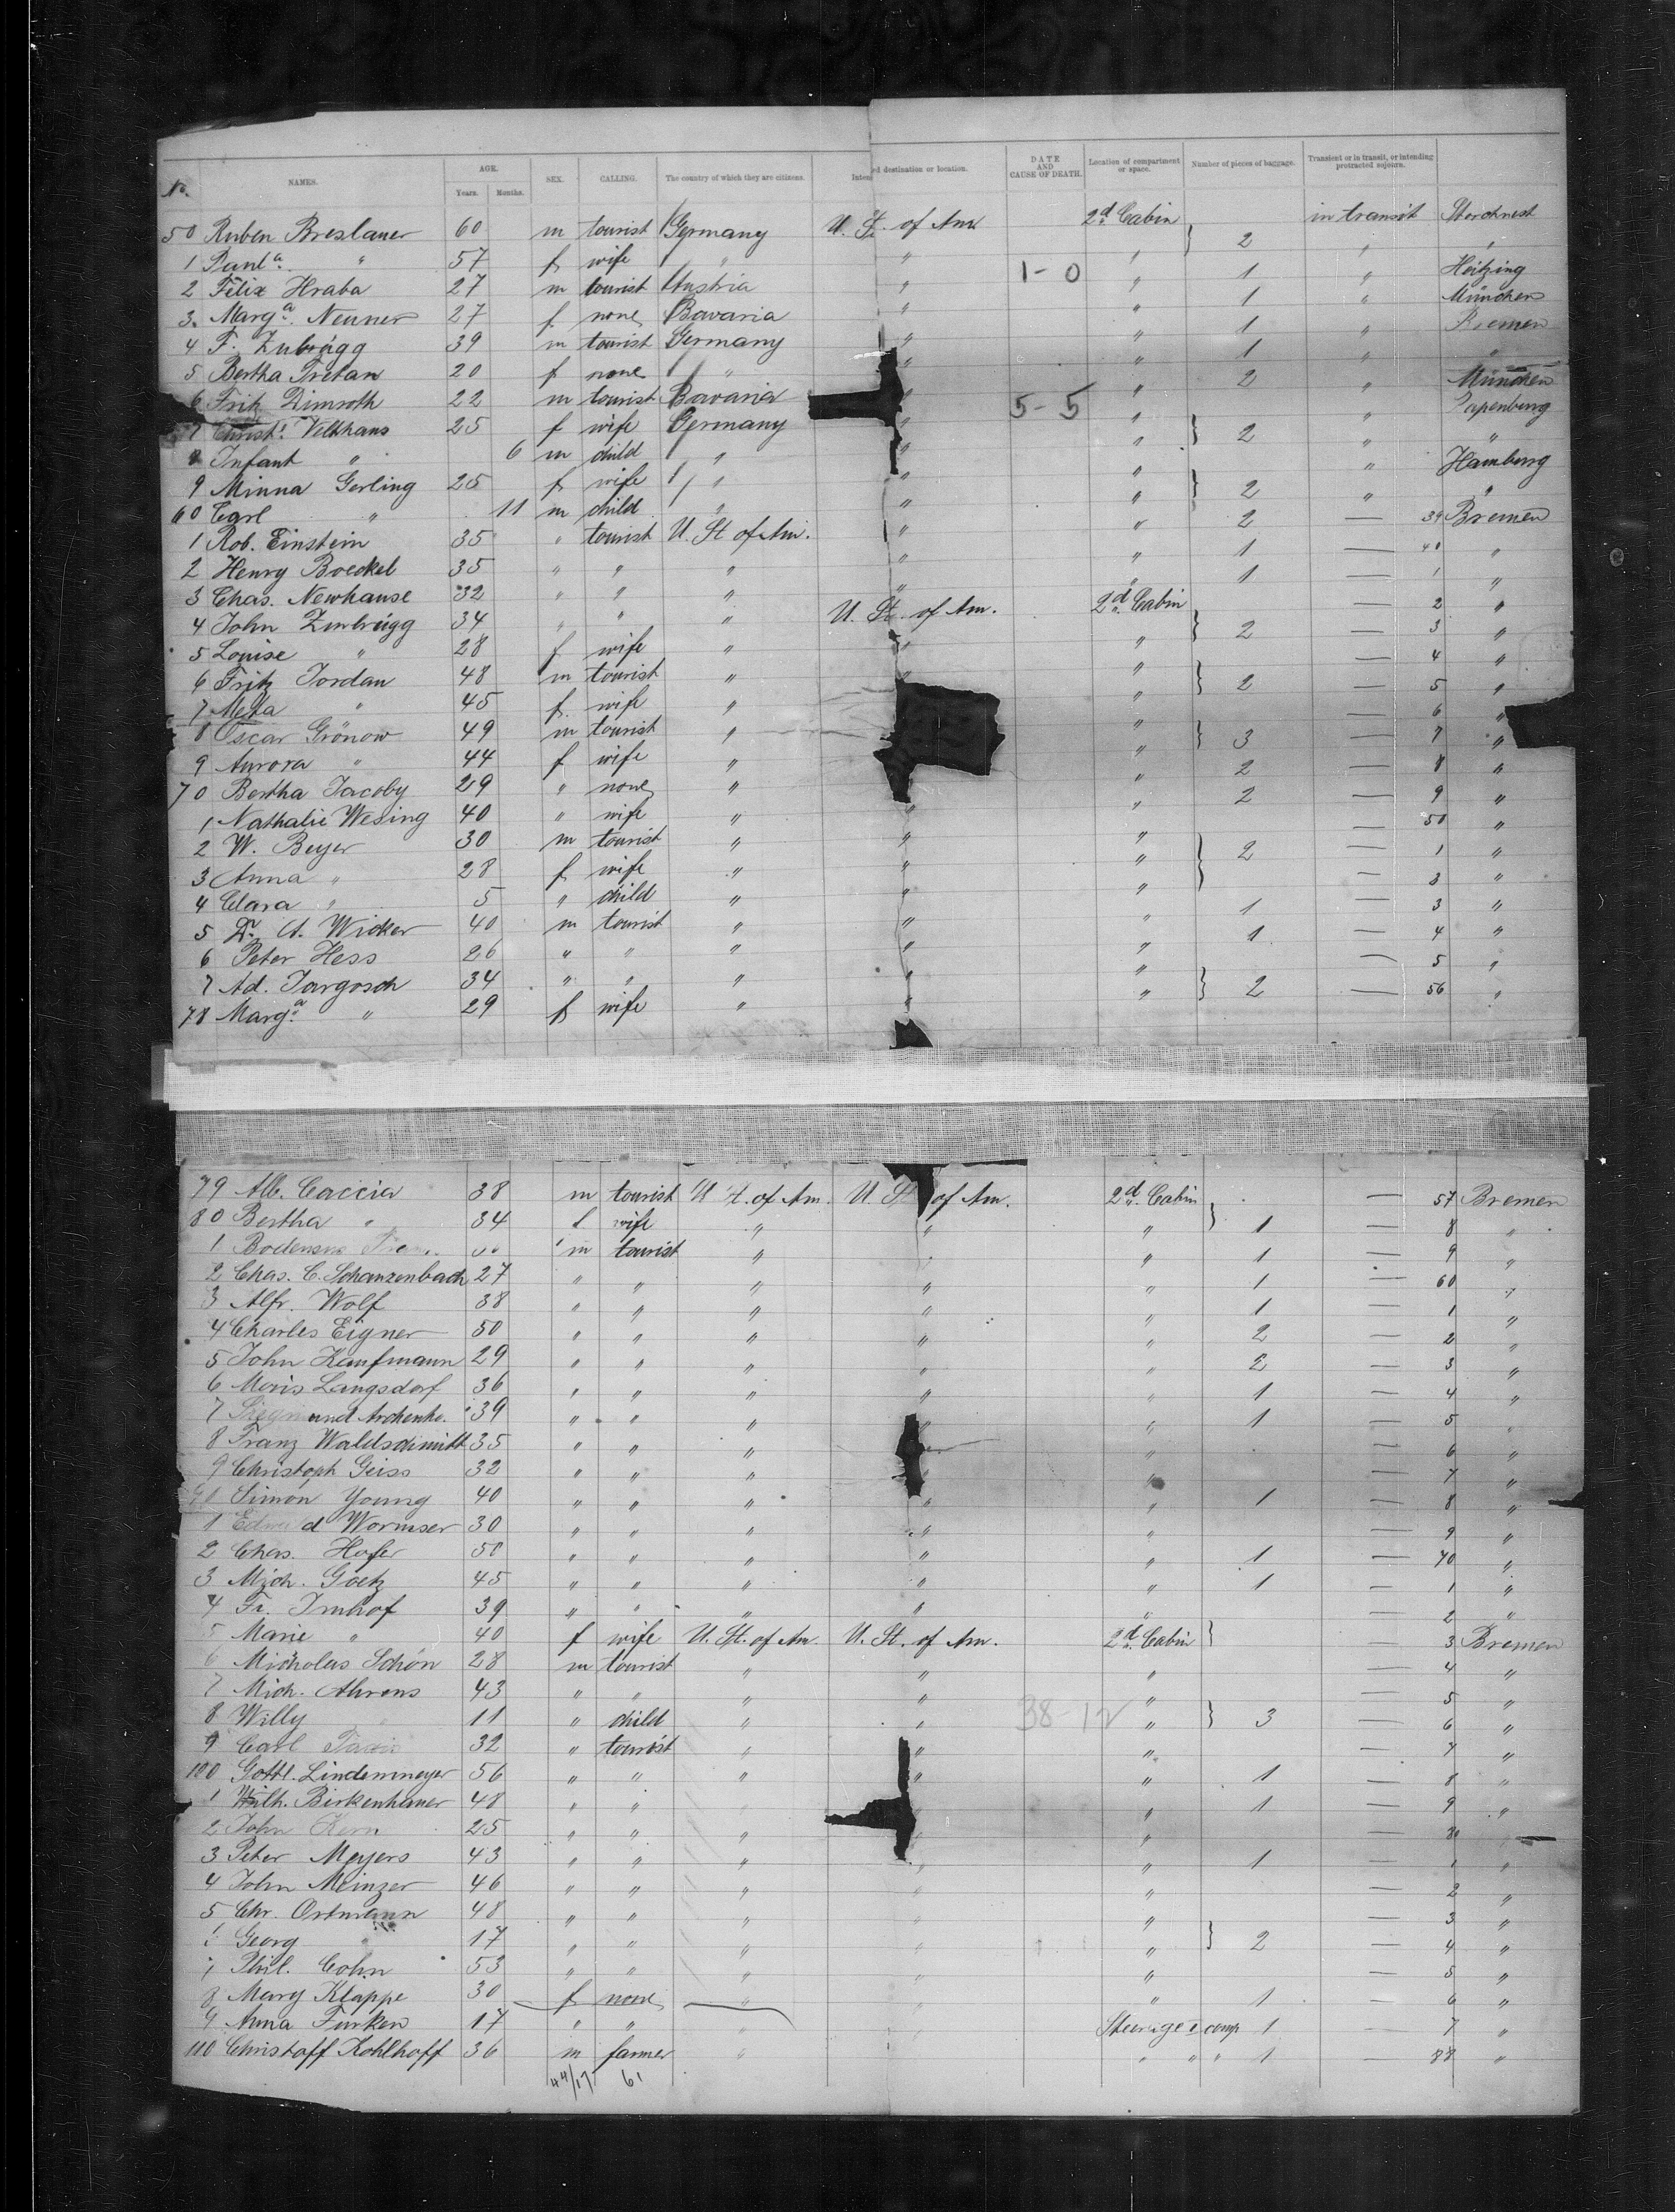 No. NAMES. AGE. Years. Months. SEX. CALLING. The country of which they are citizens. Intended destination or location. DATE AND CAUSE OF DEATH. Location of compartment or space. Number of pieces of baggage. Transient or in transit, or intending protracted sojourn.
50 Ruben Breslauer 60 m tourist Germany U. St. of Am 2d Cabin in transit Storchnest
1 Paula " 57 f wife " " " } 2 " "
2 Felix Hraba 27 m tourist Austria " 1-0 " 1 " Heitzing
3 Marga. Neuner 27 f none Bavaria " " 1 " München
4 F. Zubrügg 39 m tourist Germany " " 1 " Bremen
5 Bertha Tretan 20 f none " " " 1 " "
6 Fritz Dimroth 22 m tourist Bavaria " 5-5 " 2 " München
7 Christ. Velthaus 25 f wife Germany " " " Papenburg
8 Infant " 6 m child " " " } 2 " "
9 Minna Gerling 25 f wife " " " " Hamburg
60 Carl " 11 m child " " " } 2 " "
1 Rob. Einstein 35 " tourist U. St of Am. " " 2 — 39 Bremen
2 Henry Boeckel 35 " " " " " 1 — 40 "
3 Chas. Newhause 32 " " " " " 1 — 1 "
4 John Zurbrügg 34 " " " U. St. of Am. 2d Cabin — 2 "
5 Louise " 28 f wife " " " } 2 — 3 "
6 Fritz Jordan 48 m tourist " " " — 4 "
7 Meta " 45 f wife " " } 2 — 5 "
8 Oscar Grönow 49 m tourist " " — 6 "
9 Aurora " 44 f wife " " } 3 — 7 "
70 Bertha Jacoby 29 " none " " 2 — 8 "
1 Nathalie Wesing 40 " wife " " " 2 — 9 "
2 W. Beyer 30 m tourist " " " — 50 "
3 Anna " 28 f wife " " " } 2 — 1 "
4 Clara " 5 " child " " " — 2 "
5 Dr. A. Wicker 40 m tourist " " " 1 — 3 "
6 Peter Hess 26 " " " " " 1 — 4 "
7 Ad. Jargosch 34 " " " " " — 5 "
78 Marga. " 29 f wife " " " } 2 — 56 "
79 Alb. Caccia 38 m tourist U. St. of Am. U. St. of Am. 2d. Cabin — 57 Bremen
80 Bertha " 34 f wife " " " } 1 — 8 "
1 m tourist " " " 1 — 9 "
2 Chas. C. Schanzenbach 27 " " " " " 1 — 60 "
3 Alfr. Wolf 38 " " " " " 1 — 1 "
4 Charles Eigner 50 " " " " " 2 — 2 "
5 John Kaufmann 29 " " " " " 2 — 3 "
6 Moris Langsdorf 36 " " " " " 1 — 4 "
7 Siegmund 39 " " " " " 1 — 5 "
8 Franz Waldschmitt 35 " " " " — 6 "
9 Christoph Geiss 32 " " " " " — 7 "
90 Simon Young 40 " " " " " 1 — 8 "
1 Edward Wormser 30 " " " " " — 9 "
2 Chas. Hofer 50 " " " " " 1 — 70 "
3 Mich. Goetz 45 " " " " " 1 — 1 "
4 Fr. Imhof 39 " " " " " — 2 "
5 Marie " 40 f wife U. St. of Am. U. St. of Am. 2d. Cabin } — 3 Bremen
6 Nicholas Schön 28 m tourist " " " — 4 "
7 Mich. Ahrens 43 " " " " " — 5 "
8 Willy 11 " child " " 38-12 " } 3 — 6 "
9 Carl 32 " tourist " " " — 7 "
100 Gottl. Lindenmeyer 56 " " " " " 1 — 8 "
1 Wilh. Birkenhauer 48 " " " 1 — 9 "
2 John Kern 25 " " " " — 80
3 Peter Meyers 43 " " " " " 1 — 1 "
4 John Meinzer 46 " " " " " — 2 "
5 Chr. Ortmann 48 " " " " " — 3 "
6 Georg " 17 " " " " " } 2 — 4 "
7 Phil. Cohn 53 " " " " " — 5 "
8 Mary Klappe 30 f none " " " 1 — 6 "
9 Anna Furken 17 " " " Steerage comp 1 — 7 "
110 Christoff Kohlhoff 36 m farmer " " " " 1 — 88 "
44/17 61